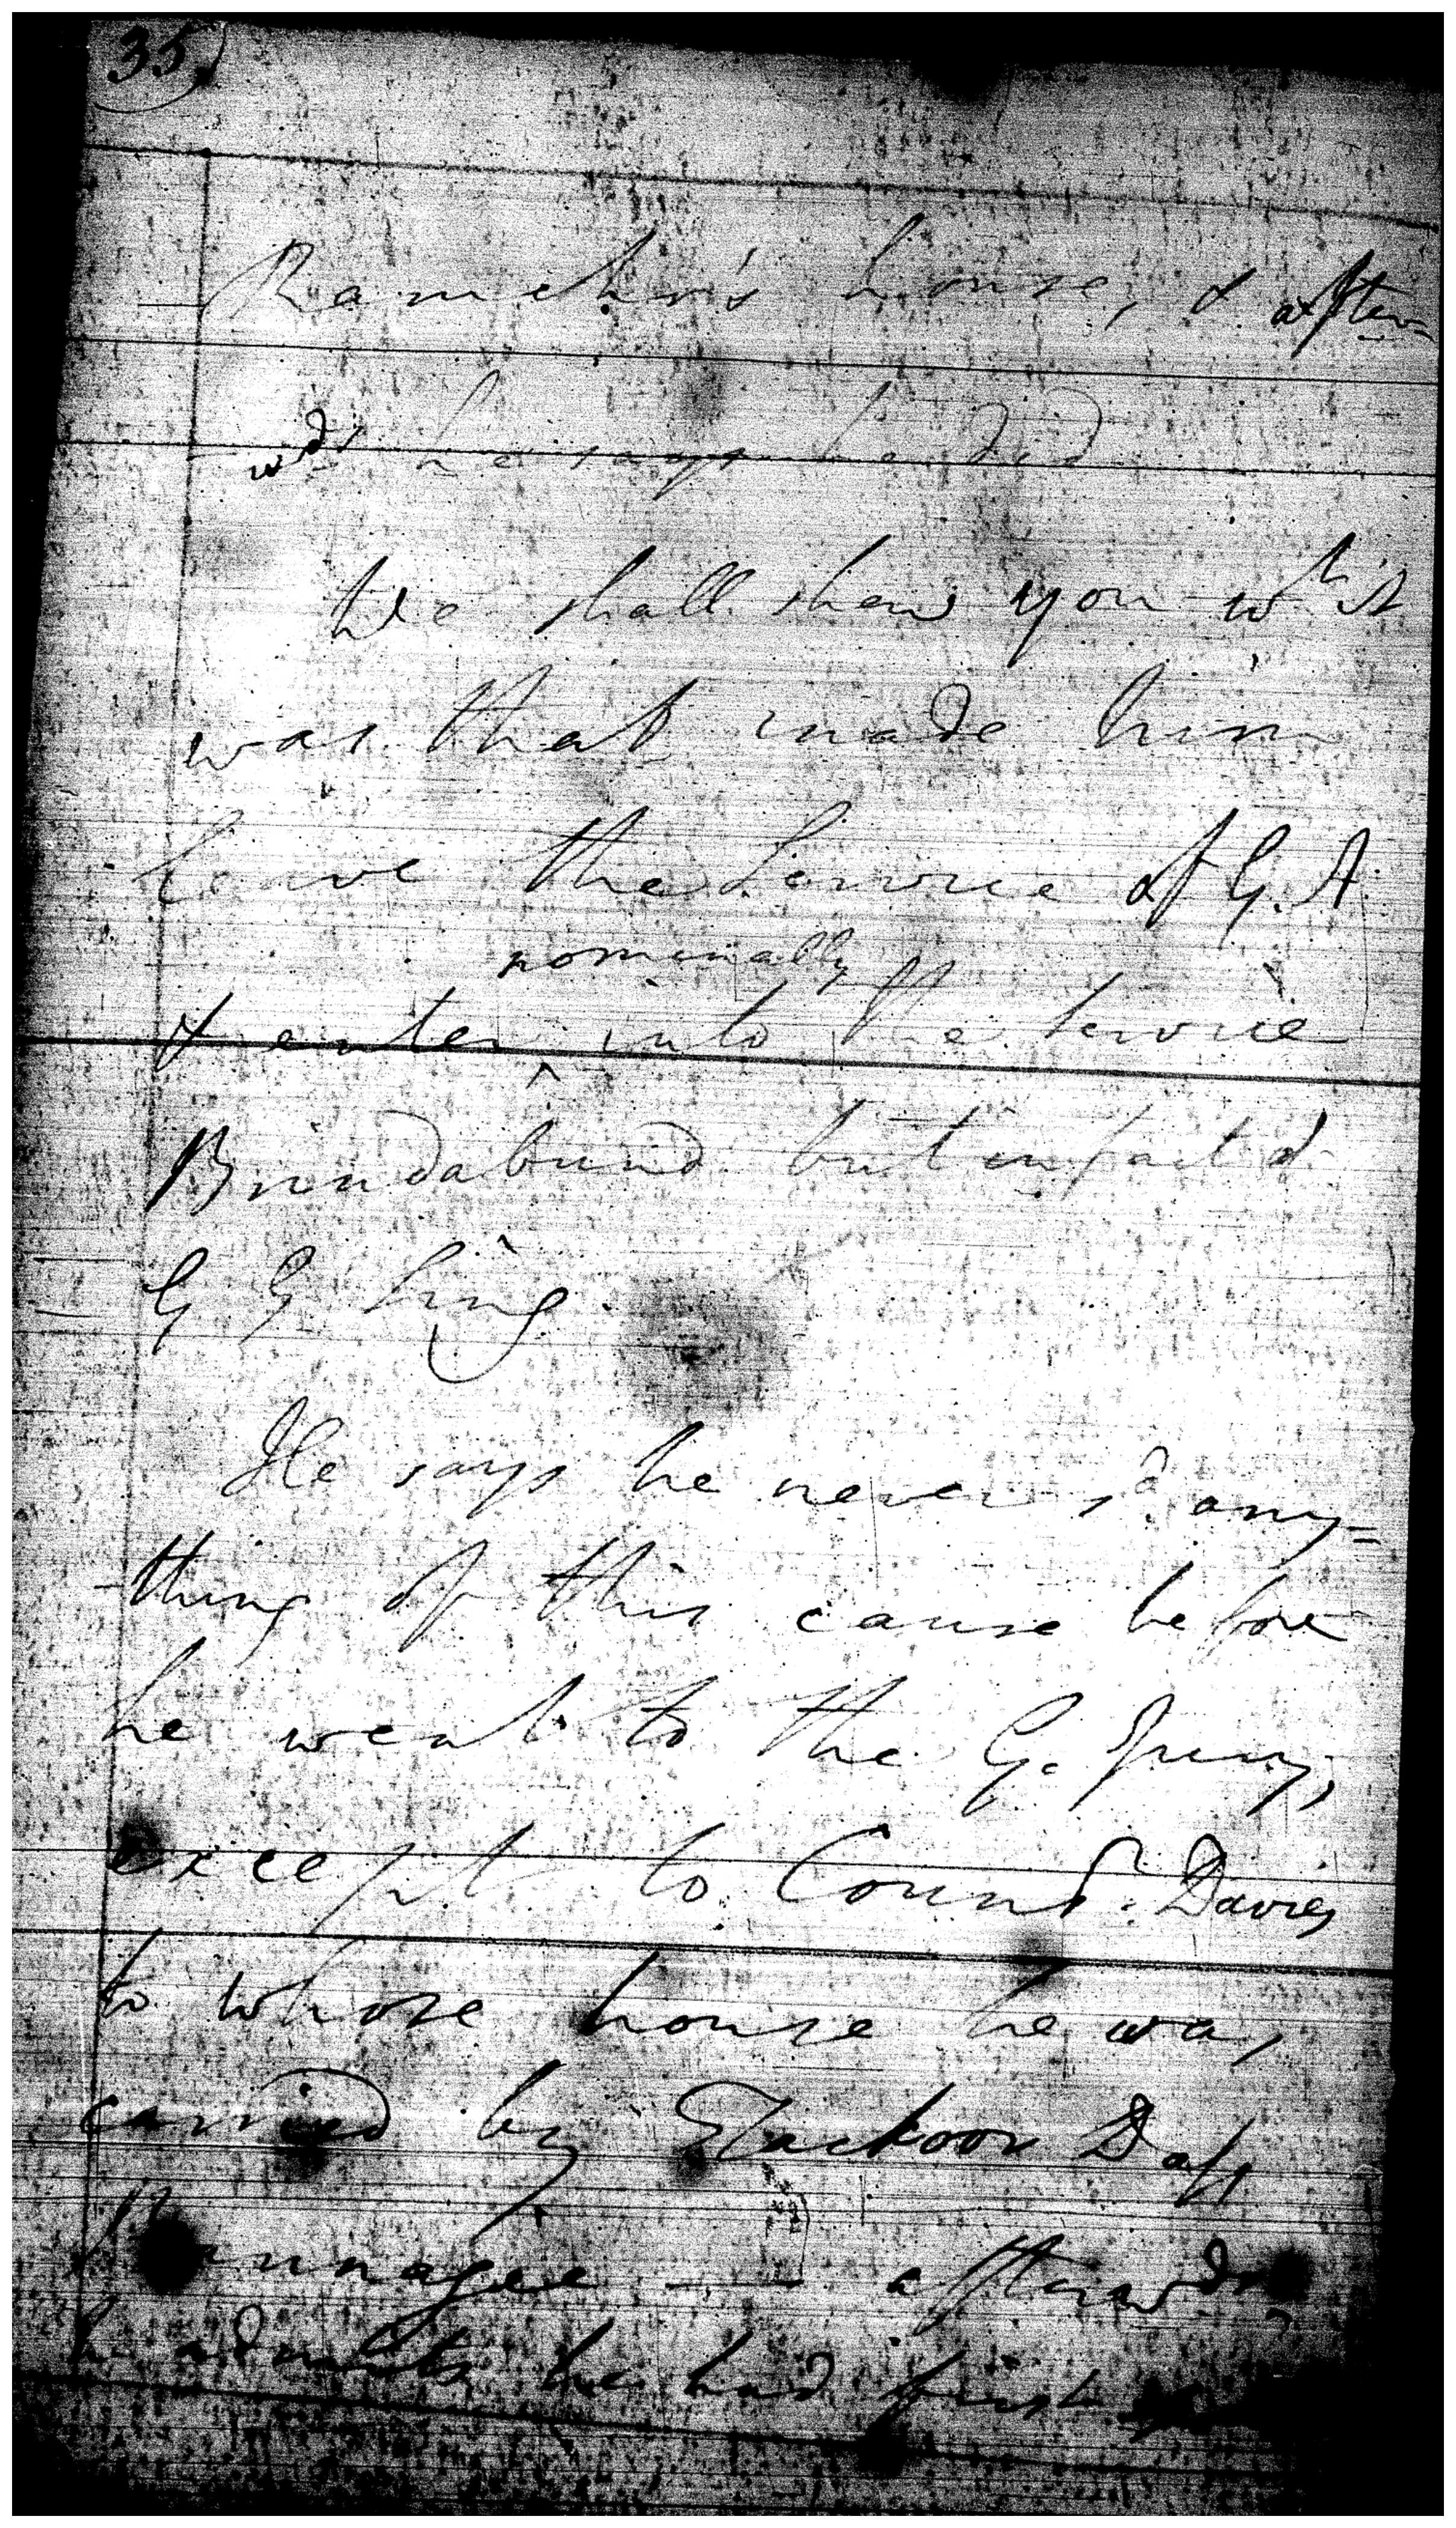 35
Ramchr's house, & after=
wds he says he did
We shall shew you wt it
was that made him
leave the Service of G. A
nominally
& enter ^ into the service
Brindabund but in fact of
G G Sing.
He says he never sd any=
thing of this cause before
he went to the G. Jury,
except to Counsr. Davies
to whose house he was
carried by Tackoor Dass
afterwds
he admits he had first